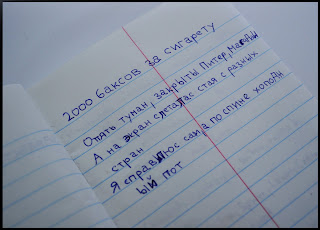 2000 баксов за сигарету
Опять туман, закрыты Питер, Магадан
А на экран слеталас стая с разных
стран
Я справлюс сам, а по спине холодн
ый пот